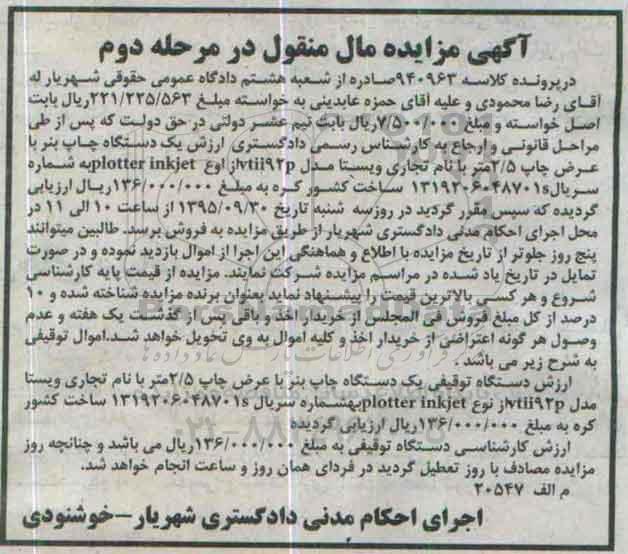 آگهی مزایده مال منقول در مرحله دوم
درپرونده کلاسه ۹۴۰۹۶۳صادره از شعبه هشتم دادگاه عمومی حقوقی شهریار له
آقای رضا محمودی و علیه آقای حمزه عابدینی به خواسته مبلغ ۲۲۱/۲۲۵/۵۶۳ریال بابت
اصل خواسته و مبلغ ۷/۵۰۰/۰۰۰ریال بابت نیم عشر دولتی در حق دولت که پس از طی
مراحل قانونی و ارجاع به کارشناس رسمی دادگستری ارزش یک دستگاه چاپ بنر با
عرض چاپ ۲/۵متر با نام تجاری ویستا مدل vtii۹۲pاز اوع plotter inkjetبه شماره
سریال۱۳۱۹۲۰۶۰۴۸۷۰۱s ساخت کشور کره به مبلغ ۱۳۶/۰۰۰/۰۰۰ریال ارزیابی
گردیده که سپس مقرر گردید در روزسه شنبه تاریخ ۱۳۹۵/۰۹/۳۰ از ساعت ۱۰ الی ۱۱ در
محل اجرای احکام مدنی دادگستری شهریار از طریق مزایده به فروش برسد. طالبین میتوانند
پنج روز جلوتر از تاریخ مزایده با اطلاع و هماهنگی این اجرا از اموال بازدید نموده و در صورت
تمایل در تاریخ یاد شده در مراسم مزایده شرکت نمایند. مزایده از قیمت پایه کارشناسی
شروع و هر کسی بالاترین قیمت را پیشنهاد نماید بعنوان برنده مزایده شناخته شده و ۱۰
درصد از کل مبلغ فروش فی المجلس از خریدار اخذ و باقی پس از گذشت یک هفته و عدم
وصول هر گونه اعتراضی از خریدار اخذ و کلیه اموال به وی تحویل خواهد شد.اموال توقیفی
به شرح زیر می باشد .
ارزش دستگاه توقیفی یک دستگاه چاپ بنر با عرض چاپ ۲/۵متر با نام تجاری ویستا
مدل vtii۹۲pاز نوع plotter inkjetبهشماره سریال ۱۳۱۹۲۰۶۰۴۸۷۰۱s ساخت کشور
کره به مبلغ ۱۳۶/۰۰۰/۰۰۰ریال ارزیابی گردیده
ارزش کارشناسی دستگاه توقیفی به مبلغ ۱۳۶/۰۰۰/۰۰۰ریال می باشد و چنانچه روز
مزایده مصادف با روز تعطیل گردید در فردای همان روز و ساعت انجام خواهد شد.
م الف ۲۰۵۴۷
اجرای احکام مدنی دادگستری شهریار-خوشنودی